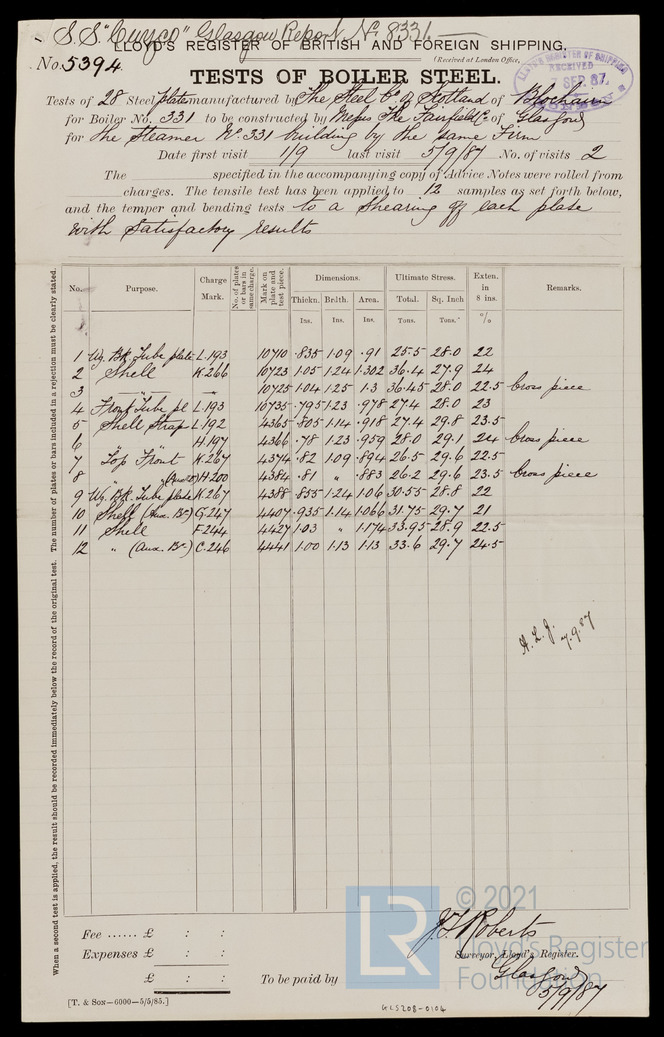 S.S. "Cuzco" Glasgow Report No. 8331
LLOYD'S REGISTER OF BRITISH AND FOREIGN SHIPPING.
No. 5394
(Received at London Office,
LLOYD'S REGISTER OF SHIPPING
RECEIVED
7 SEP. 87
LONDON
TESTS OF BOILER STEEL.
Tests of 28 Steel plates manufactured by The Steel Co. of Scotland of Blochairn
for Boiler No. 331 to be constructed by Messrs The Fairfield Co. of Glasgow
for the Steamer No 331 building by the same Firm
Date first visit 1/9 last visit 5/9/87 No. of visits 2
The specified in the accompanying copy of Advice Notes were rolled from
charges. The tensile test has been applied to 12 samples as set forth below,
and the temper and bending tests to a shearing of each plate
with satisfactory results
No. Purpose. Charge Mark. No. of plates or bars in same charge. Mark on plate and test piece. Dimensions. Ultimate Stress. Exten. in 8 ins. Remarks.
Thickn. Brdth. Area. Total. Sq. Inch
Ins. Ins. Ins. Tons. Tons. %
1 Wg. Bk. Tube plate L.193 10710 .835 1.09 .91 25.5 28.0 22
2 Shell K.266 10723 1.05 1.24 1.302 36.4 27.9 24
3 — " — 10725 1.04 1.25 1.3 36.45 28.0 22.5 Cross piece
4 Front Tube pl L.193 10735 .795 1.23 .978 27.4 28.0 23
5 Shell Strap L.192 4365 .805 1.14 .918 27.4 29.8 23.5
6 " H.197 4366 .78 1.23 .959 28.0 29.1 24 Cross piece
7 Top Front K.267 4374 .82 1.09 .894 26.5 29.6 22.5
8 " " H.200 4384 .81 " .883 26.2 29.6 23.5 Cross piece
9 Wg. Bk. Tube plate K.267 4388 .855 1.24 1.06 30.55 28.8 22
10 Shell (Aux. Br.) G.247 4407 .935 1.14 1.066 31.75 29.7 21
11 Shell F.244 4427 1.03 " 1.174 33.95 28.9 22.5
12 " (Aux. Br.) C.246 4441 1.00 1.13 1.13 33.6 29.7 24.5
7.9.87
When a second test is applied, the result should be recorded immediately below the record of the original test. The number of plates or bars included in a rejection must be clearly stated.
Fee ...... £ : :
Expenses £ : :
£ : :
To be paid by
J T Roberts
Surveyor, Lloyd's Register.
Glasgow
5/9/87
[T. & Son—6000—5/5/85.]
GLS208-0104
LR
© 2021
Lloyd's Register
Foundation